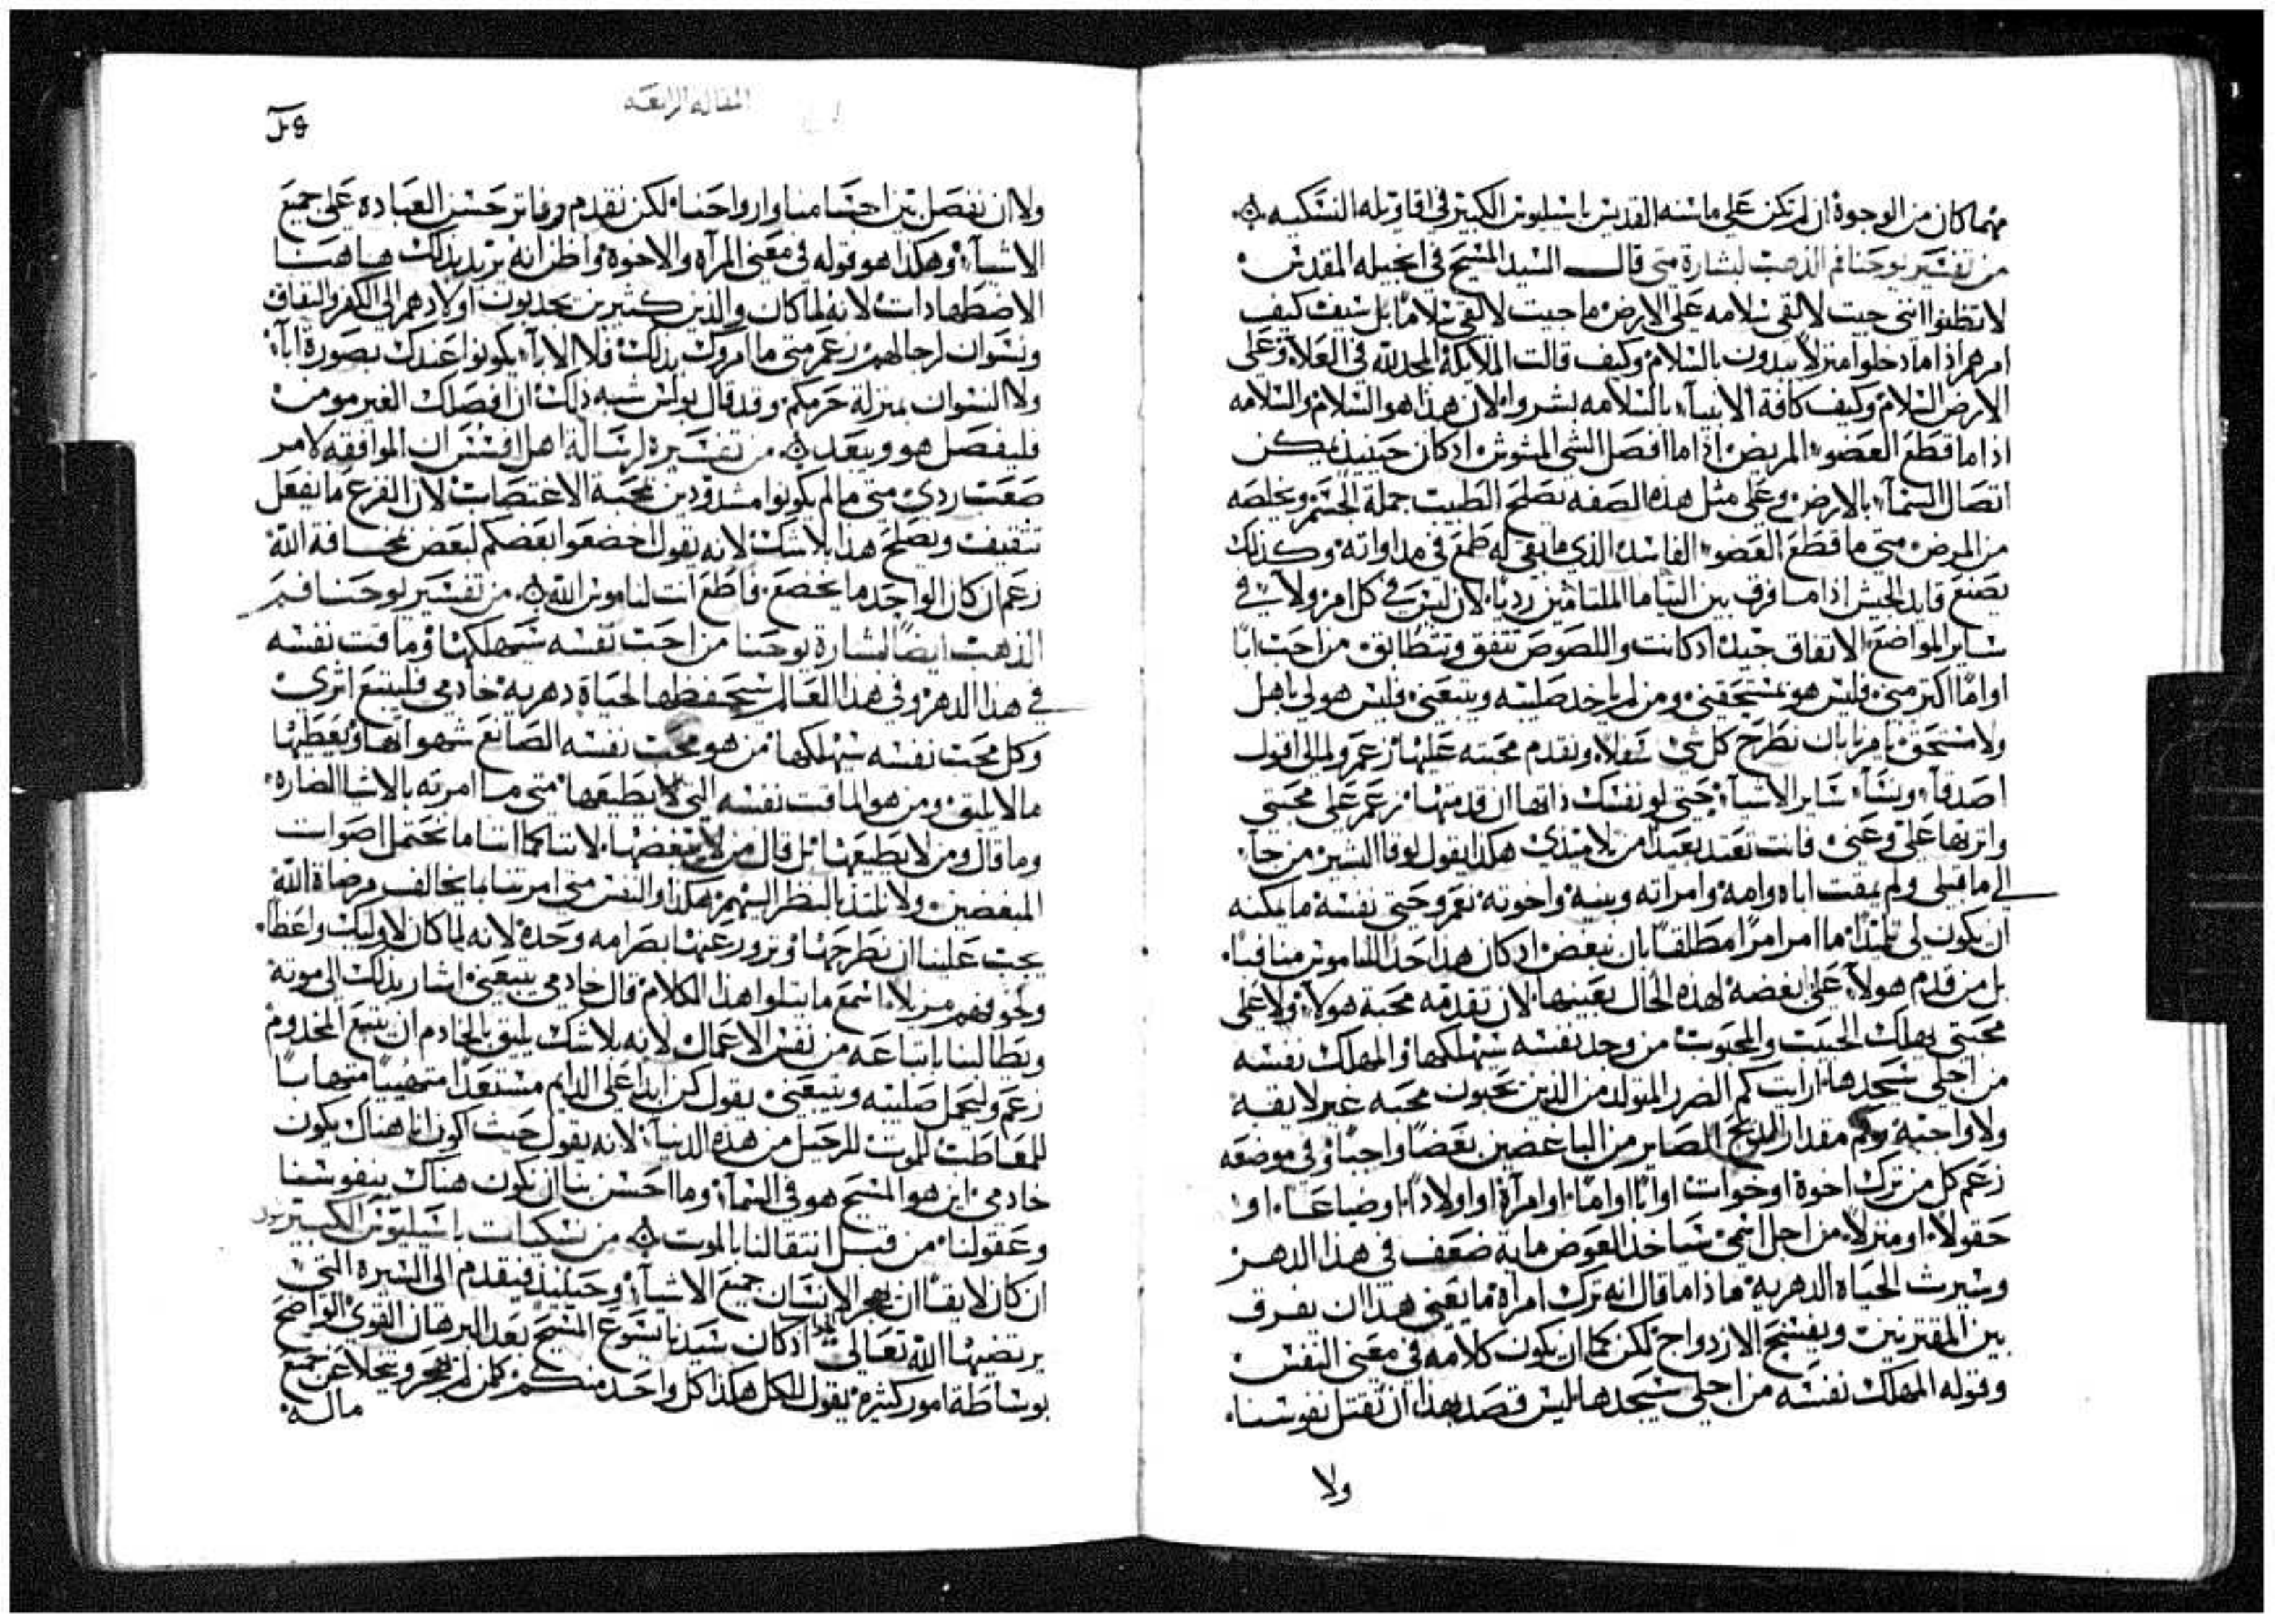 مهما كان من الوجوه ان لم تكن على ما سنه القديس باسيليوس الكبير في اقاويله النسكيه
من تفسير يوحنا فم الذهب لبشارة متى قال السيد المسيح في انجيله المقدس
لا تظنوا انني جيت لالقي سلامه على الارض ما جيت لالقي سلامًا بل سيف كيف
امرهم اذا ما دخلوا منزلًا يبدون بالسلام وكيف قالت الملايكة المجد لله في العلا وعلى
الارض السلام وكيف كافة الانبيآء بالسلامه بشروا لان هذا هو السلام والسلامه
اذا ما قطع العضو المريض اذا ما افصل الشي المشوش اذ كان حينيذ يمكن
اتصال السمآء بالارض وعلى مثل هذه الصفه يصلح الطبيب جملة الجسم ويخلصه
من المرض متى ما قطع العضو الفاسد الذي ما بقي له طمع في مداواته وكذلك
يصنع قايد الجيش اذا ما فرق بين الملتامين رديًا لان ليس في كل امر ولا في
ساير المواضع الاتفاق جيد اذ كانت واللصوص تتفق وتتطابق من احب ابًا
او امًا اكثر مني فليس هو مستحقني ومن لم ياخد صليبه ويتبعني فليس هو لي باهل
ولا مستحق يامرنا بان نطرح كل شي سفلًا ونقدم محبته عليها زعم ولم لي اقول
اصدقآء ونسآء ساير الاشيآء حتى لو نفسك ذاتها ان قدمتها زعم على محبتي
واثرتها علي وعني فانت تعبد بعيدًا من تلاميذي هكذا يقول لوقا البشير من جآء
الي ما قبلي ولم يمقت اباه وامه وامراته وبنيه واخوته نعم وحتى نفسه ما يمكنه
ان يكون لي تلميذًا ما امر امرًا مطلقًا بان نبغض اذ كان هذا جدًا للناموس منافيًا
بل من قدم هولآء علي ابغضه لهذه الحال بعينها لان تقدمه محبة هولآء ولا على
محبتي يهلك الحبيب والمحبوب من وجد نفسه سيهلكها والمهلك نفسه
من اجلي سيجدها ارايت كم الضرر المتولد من الذين يحبون محبه غير لايقه
ولا واجبه وكم مقدار الربح الصاير من الباغضين بغضًا واجبًا وفي موضعه
زعم كل من ترك اخوة او خوات او ابًا او امًا او امرآة او اولادًا او ضياعًا او
حقولًا او منزلًا من اجل اسمي سياخذ العوض ماية ضعف في هذا الدهر
وسيرث الحياه الدهريه فاذا ما قال انه ترك امراة ما يعني هذا ان نفرق
بين المقترنين ويفسخ الازدواج لكن كما ان يكون كلامه في معنى النفس
وقوله المهلك نفسه من اجلي سيجدها ليس قصد بهذا ان نقتل نفوسنا
ولا
المقاله الرابعه
ولا ان نفصل بين اجسامنا وارواحنا لكن نقدم ونوثر حسن العباده على جميع
الاشيآء وهكذا هو قوله في معنى المرآه والاخوة واظن انه يريد بذلك هاهنا
الاضطهادات لانه لما كان والدين كثيرين يجدبون اولادهم الى الكفر والنفاق
ونسوان لرجالهن زعم متى ما امروك بذلك فلا الابآء يكونوا عندك بصورة ابآء
ولا النسوان بمنزلة حرمكم وقد قال بولس شبه ذلك ان افصلك الغير مومن
فليفصل هو ويبعد من تفسيره لرسالة اهل افسس ان الموافقه لامر
صعب ردي متى ما لم يكونوا مشدودين بمحبة الاغتصاب لان الفزع ما يفعل
تثقيف ويصلح هذا بلا شك لانه يقول اخضعوا بعضكم لبعض بمخافة الله
زعم ان كان الواحد ما يخضع فاطع انت لناموس الله من تفسير يوحنا فم
الذهب ايضًا لبشارة يوحنا من احب نفسه سيهلكها وماقت نفسه
في هذا الدهر وفي هذا العالم سيحفظها لحياة دهريه خادمي فليتبع اثري
وكل محب نفسه سيهلكها من هو محب نفسه الصانع شهواتها ويعطيها
ما لا يليق ومن هو الماقت نفسه التي لا يطيعها متى ما امرته بالاشيا الضاره
وما قال ومن لا يطيعها بل قال من يبغضها لاننا كما اننا ما نحتمل اصوات
المبغضين ولا نلتذ بالنظر اليهم هكذا والنفس متى امرتنا بما يخالف مرضاة الله
يجب علينا ان نطرحها ونزور عنها بصرامه وحده لانه لما كان لاوليك واعظًا
وخوفهم من بلاء اسمع ما يتلوا هذا الكلام قال خادمي يتبعني اشار بذلك الى موته
ويطالبنا باتباعه من نفس الاعمال لانه بلا شك يليق بالخادم ان يتبع المخدوم
زعم وليحمل صليبه ويتبعني يقول كن ابدًا على الدايم مستعدًا متهيبًا
للمعاطب للموت للرحيل من هذه الدنيا لانه يقول حيث اكون انا هناك يكون
خادمي اين هو المسيح هو في السمآء وما احسن بنا ان نكون هناك بنفوسنا
وعقولنا من قبل انتقالنا بالموت من نسكيات باسيليوس الكبير
ان كان لايقًا ان يهجر الانسان جميع الاشيآء وحينيذ فيتقدم الى السيره التي
يرتضيها الله تعالى اذ كان سيدنا يسوع المسيح بعد البرهان القوي الواضح
بوساطة امور كثيره يقول للكل هكذا كل واحد منكم كمن لم يهجر ويتخلا عن جميع
ماله